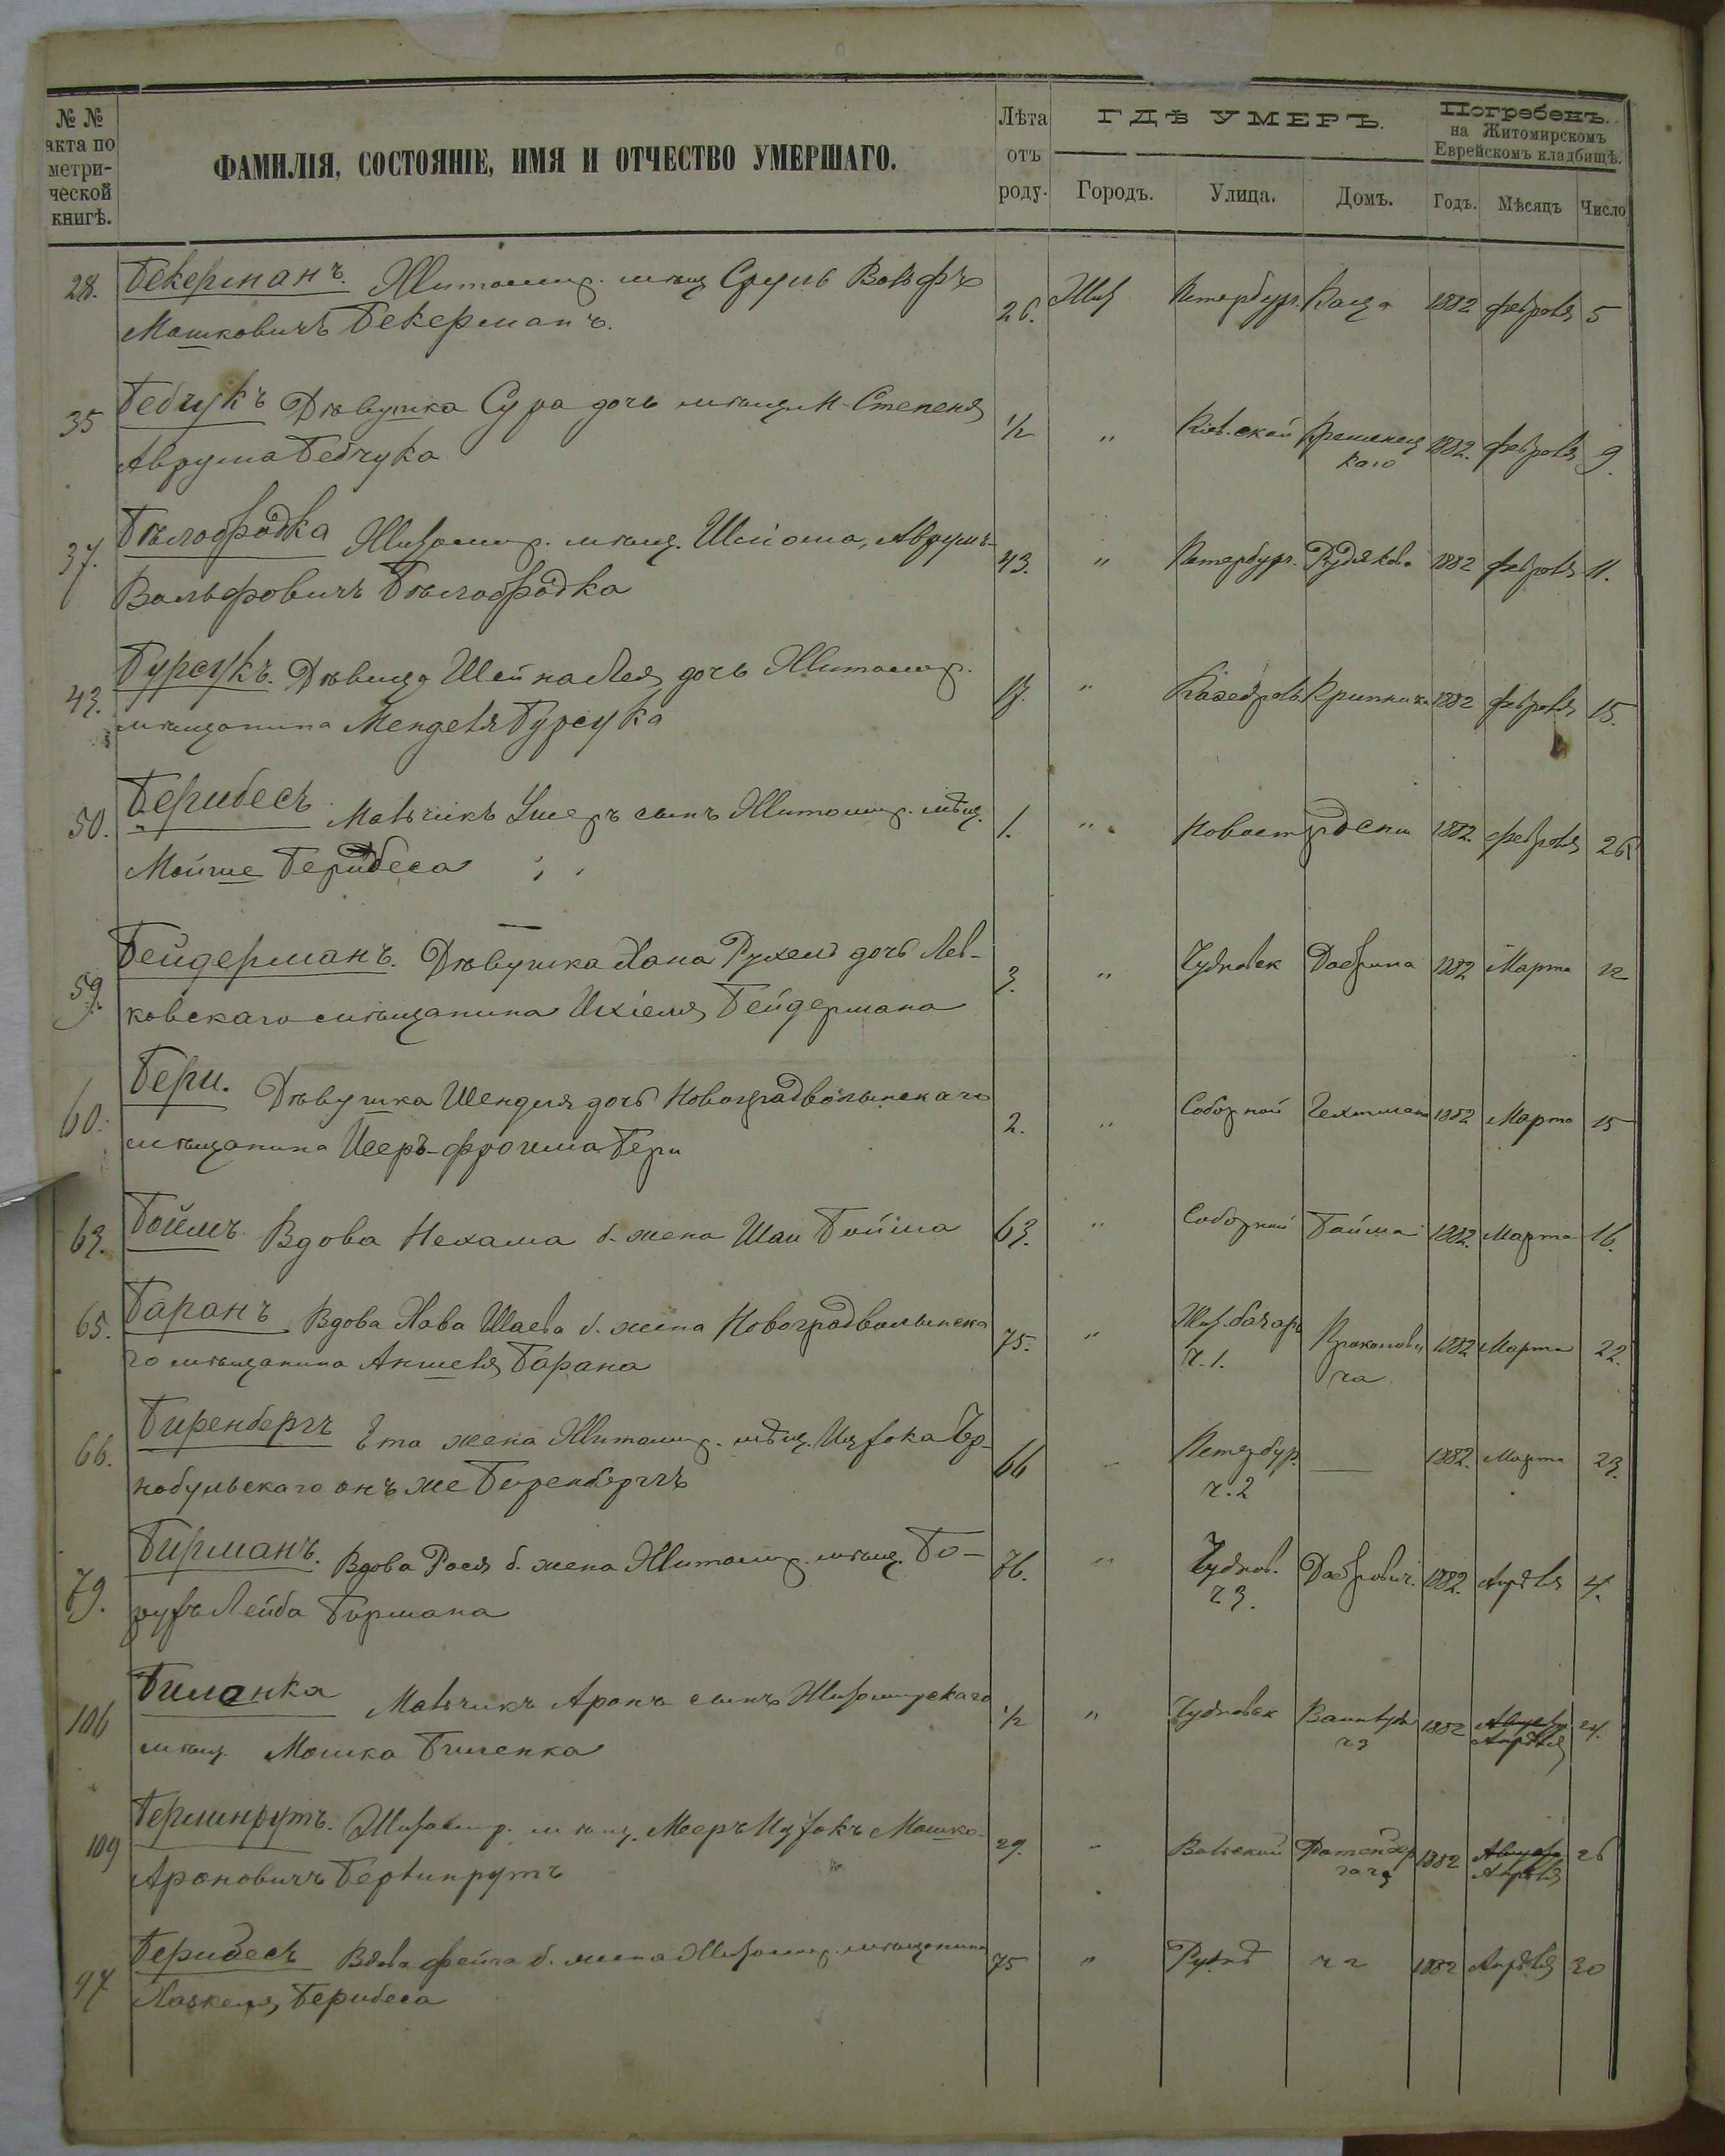 № №
акта по
метри-
ческой
книгѣ.
ФАМИЛІЯ, СОСТОЯНІЕ, ИМЯ И ОТЧЕСТВО УМЕРШАГО.
Лѣта
отъ
роду.
ГДѢ УМЕРЪ.
Городъ. Улица. Домъ.
Погребенъ.
на Житомирскомъ
Еврейскомъ кладбищѣ.
Годъ. Мѣсяцъ Число
28. Бекерманъ. Житомир. мѣщ Сруль Вольфъ 26. Жит Петербург. 1882 февраля 5
Мошковичъ Бекерманъ.
35 Бебчукъ Дѣвушка Сура дочь мѣщ. М. Степеня 1/2 " Кіевской Кременец 1882. февраля 9.
Аврума Бебчука каго
37. Бѣлобродка Житомир. мѣщ. Шліома, Аврумъ- 43. " Петербург. Рудяков 1882 февраля 11.
Вольфовичъ Бѣлобродка
43. Бурсукъ. Дѣвица Шейна Лея, дочь Житомир. 17. " Каѳедраль 1882 февраля 15.
мѣщанина Менделя Бурсука
50. Берибесъ Мальчикъ Ушеръ сынъ Житомир. мѣщ. 1. " 1882. февраля 26
Мойше Берибеса
59. Бейдерманъ. Дѣвушка Хана Рухель дочь Лев- 3. " Чудновск Добрина 1882 Марта 12
ковскаго мѣщанина Ихіеля Бейдермана
60. Бери. Дѣвушка Шендля дочь Новоградволынскаго 2. " Соборной Гехтмана 1882 Марта 15
мѣщанина Исеръ-Фроима Бери
63. Боймъ. Вдова Нехама б. жена Шаи Бойма 63. " Соборной Бойма 1882. Марта 16.
65. Баранъ Вдова Хава Шаева б. жена Новоградволынска 75. " Жит. 1882 Марта 22.
го мѣщанина Аншеля Барана ч. 1. ча
66. Биренбергъ Эта жена Житомир. мѣщ. Ицхока Чер- 66 Петербур. — 1882. Марта 23.
нобульскаго онъ же Биренбергъ ч. 2
79. Бирманъ. Вдова Рося б. жена Житомир. мѣщ. Бо- 76. " Чуднов. Добрович. 1882. Апрѣля 4.
рухъ Лейба Бирмана ч 3.
106 Биленка Мальчикъ Аронъ сынъ Житомирскаго 1/2 " Чудновск 1882 24.
мѣщ. Мошка Биленка ч 3 Апрѣля
109 Берлинрутъ. Житомир. мѣщ. Мееръ Ицхокъ Мошко- 29. " Вильской 1882 26
Ароновичъ Берлинрутъ Апрѣля
97 Берибесъ Вдова Фейга б. жена Житомир. мѣщанина 75 " Рудня ч 2 1882 Апрѣля 30
Хаскеля, Берибеса